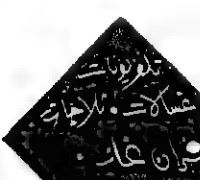 تلفزيونات
غسالات . ثلاجات
نيران غاز .